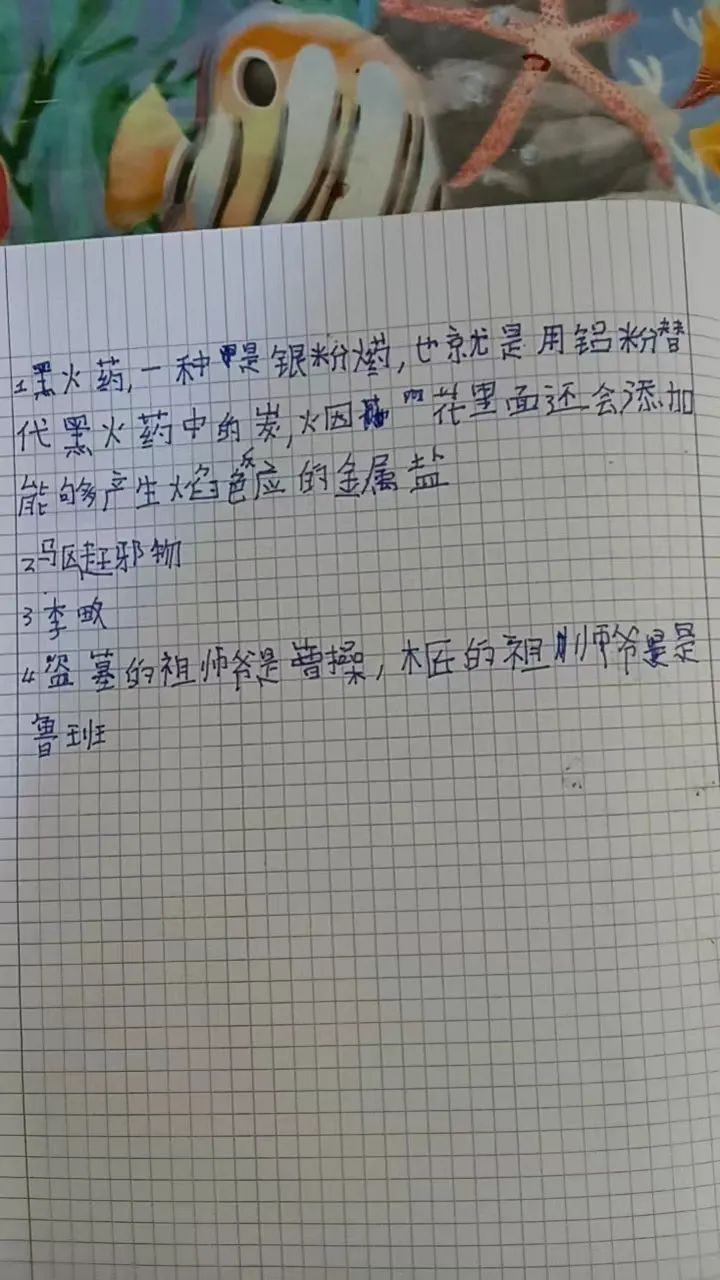 1黑火药,一种是银粉火药,也就是用铝粉替
代黑火药中的炭,烟花里面还会添加
能够产生焰色反应的金属盐
2驱赶邪物
3李畋
4盗墓的祖师爷是曹操,木匠的祖师爷是
鲁班